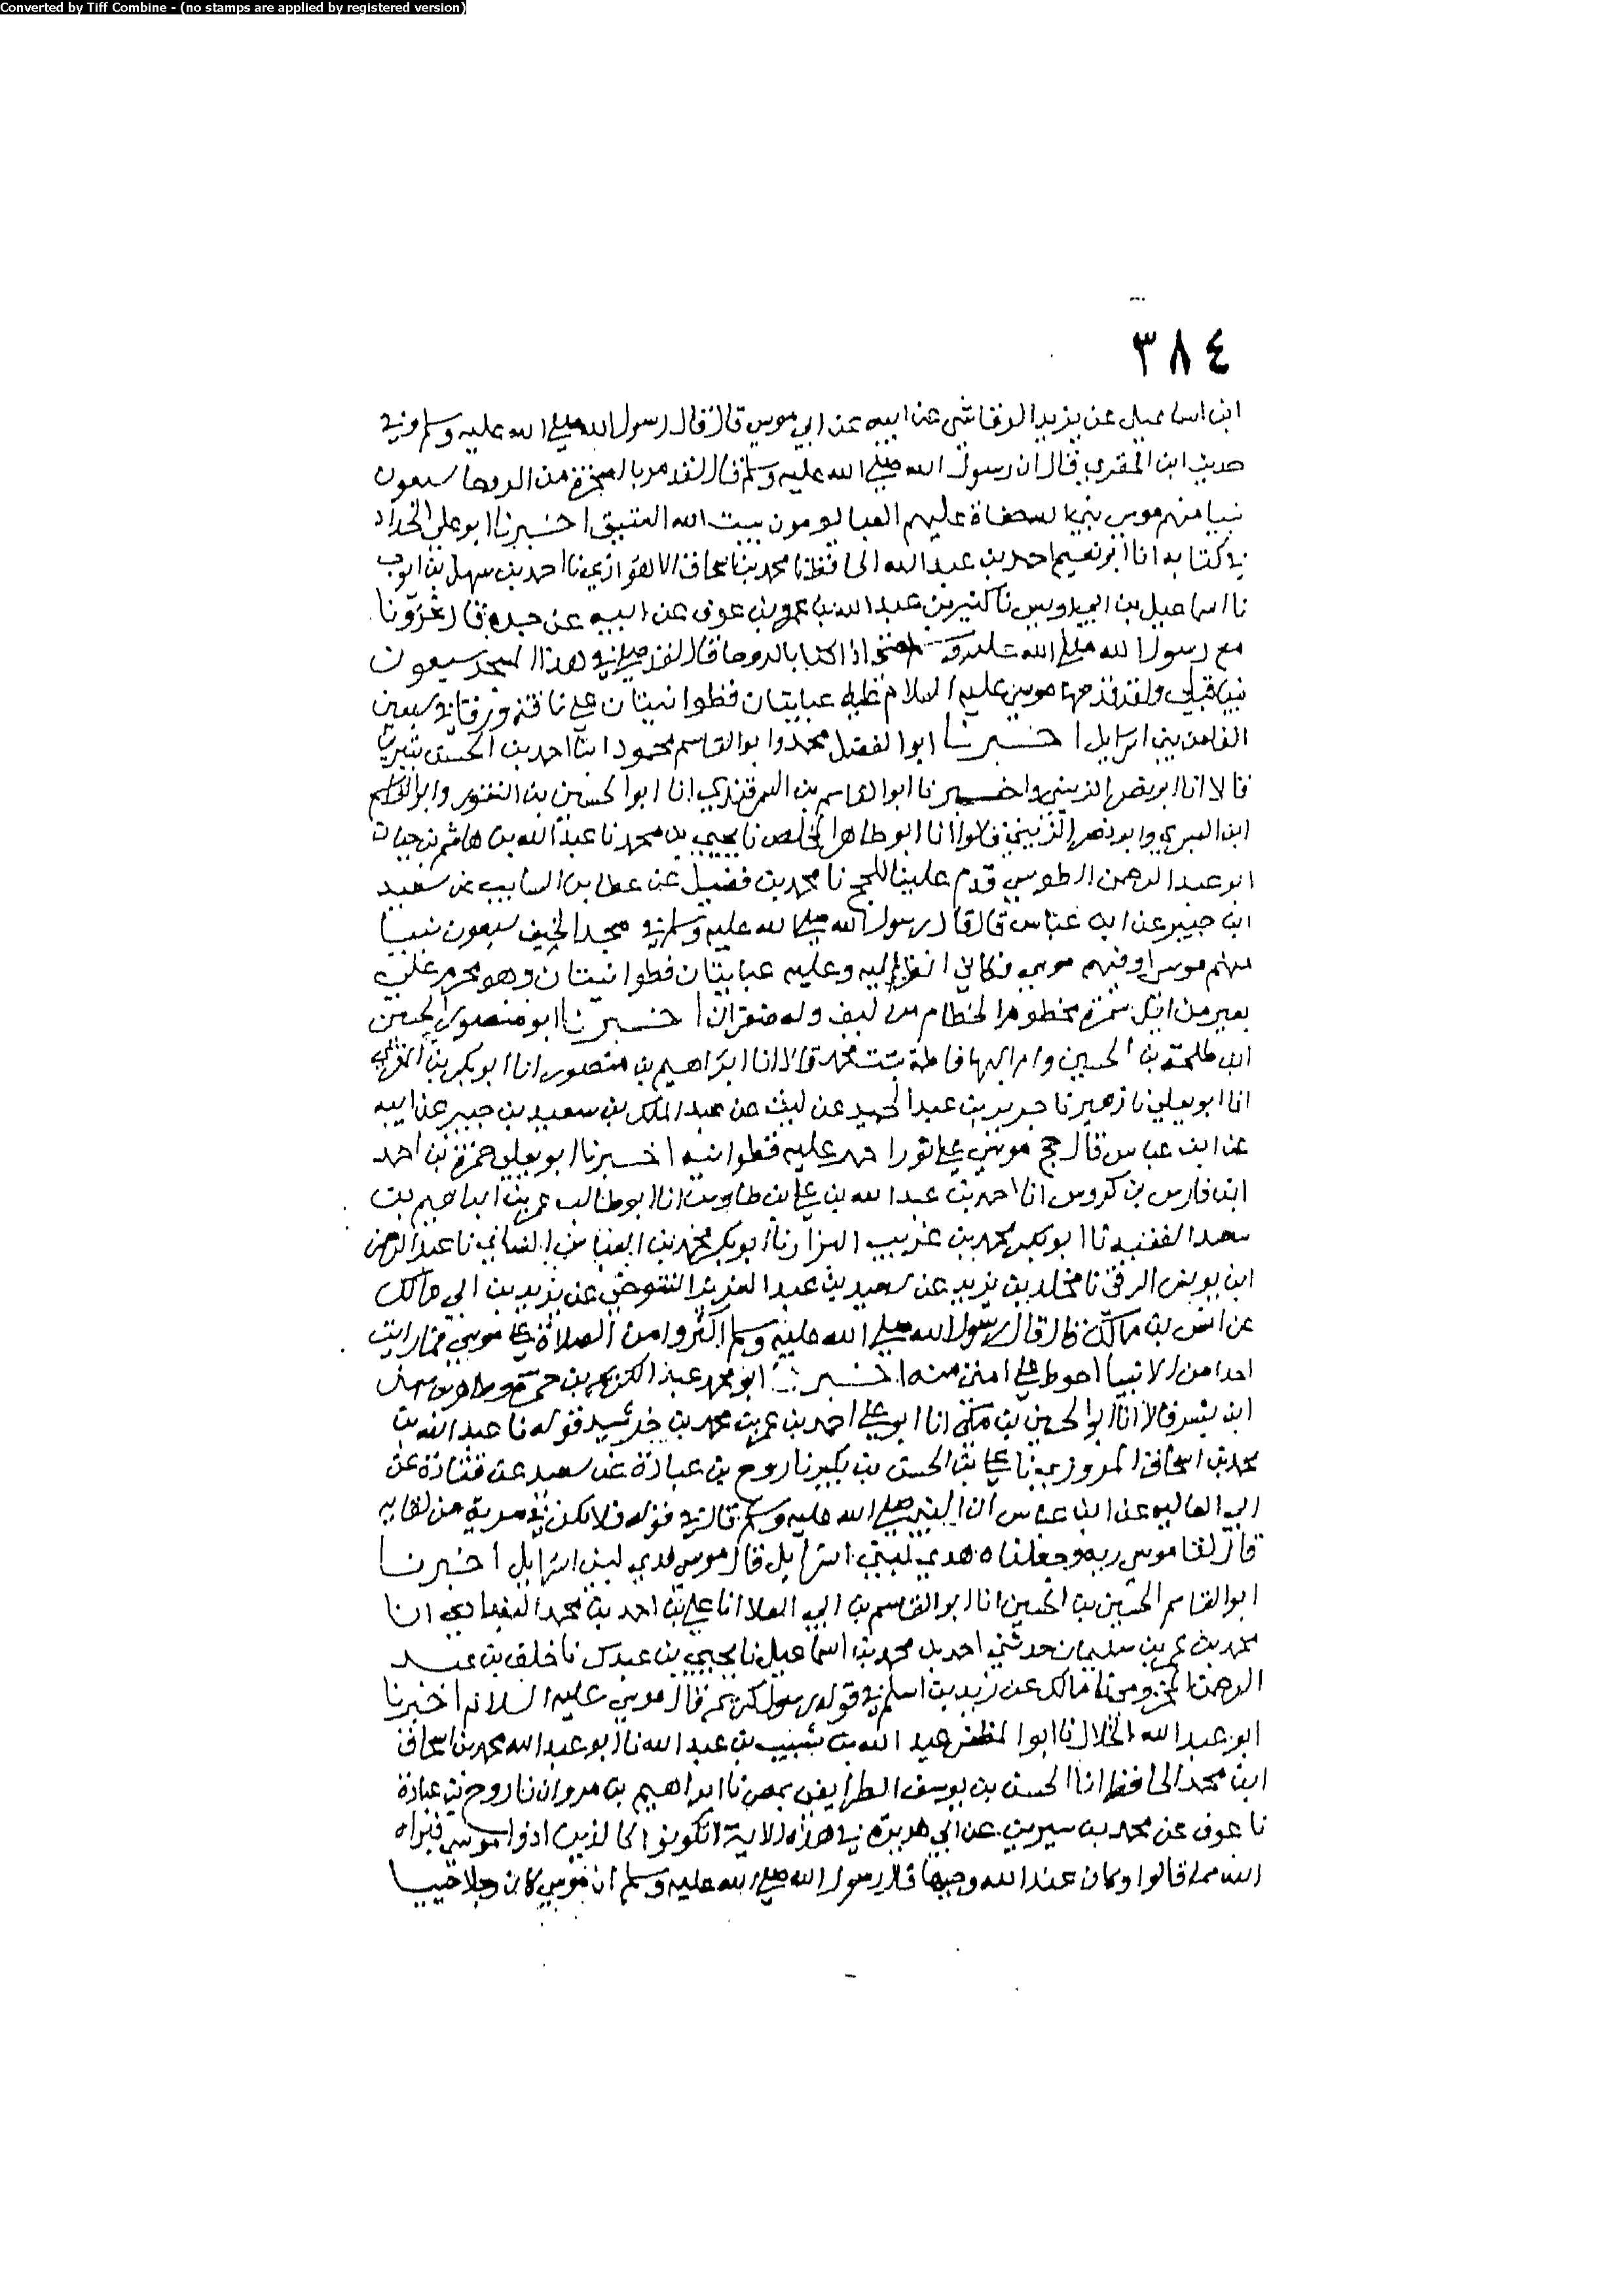 Converted by Tiff Combine - (no stamps are applied by registered version)
٣٨٤
ابن اسماعيل عن يزيد الرقاشي عن ابيه عن ابي موسي قال قال رسول الله صلي الله عليه وسلم وفي
حديث ابن المقري قال ان رسول الله صلي الله عليه وسلم قال لقد مر بالصخرة من الروحا سبعون
نبيا منهم موسي نبي الله حفاة عليهم العبا يومون بيت الله العتيق اخبرنا ابو علي الحداد
في كتابه انا ابو نعيم احمد بن عبد الله الحافظ نا محمد بن اسحاق الاهوازي نا احمد بن سهل بن ايوب
نا اسماعيل بن ابي اويس نا كثير بن عبد الله بن عمرو بن عوف عن ابيه عن جده قال غزونا
مع رسول الله صلي الله عليه حتي اذا كنا بالروحا قال لقد صلي في هذا المسجد سبعون
نبيا قبلي ولقد قدمها موسي عليه السلام عليه عبايتان قطوانيتان علي ناقة ورقا في سبعين
الفا من بني اسرايل اخبرنا ابو الفضل محمد وابو القاسم محمود ابنا احمد بن الحسن بتبريز
قالا انا ابو نصر الزينبي واخبرنا ابو القاسم بن السمرقندي انا ابو الحسين بن النقور وابو القاسم
ابن البسري وابو نصر الزينبي قالوا انا ابو طاهر المخلص نا يحيي بن محمد نا عبد الله بن هاشم بن حيان
ابو عبد الرحمن الطوسي قدم علينا للحج نا محمد بن فضيل عن عطا بن السايب عن سعيد
ابن جبير عن ابن عباس قال قال رسول الله صلي الله عليه وسلم في مسجد الخيف سبعون نبيا
منهم موسي او فيهم موسي فكاني انظر اليه وعليه عبايتان قطوانيتان وهو محرم علي
بعير من ابل شنوة مخطوم الخطام من ليف وله ضفران اخبرنا ابو منصور الحسين
ابن طلحة بن الحسين وام البها فاطمة بنت محمد قالا انا ابراهيم بن منصور انا ابو بكر بن المقري
انا ابو يعلي نا زهير نا جرير بن عبد الحميد عن ليث عن عبد الملك بن سعيد بن جبير عن ابيه
عن ابن عباس قال حج موسي علي ثور احمر عليه قطوانية اخبرنا ابو يعلي حمزة بن احمد
ابن فارس بن كروس انا احمد بن عبد الله بن علي بن طاوس انا ابو طالب عمر بن ابراهيم بن
سعد الفقيه نا ابو بكر محمد بن غريب البزار نا ابو بكر محمد بن العباس النسائي نا عبد الرحمن
ابن يونس الرقي نا مخلد بن يزيد عن سعيد بن عبد العزيز التنوخي عن يزيد بن ابي مالك
عن انس بن مالك قال قال رسول الله صلي الله عليه وسلم اكثروا من الصلاة علي موسي فما رايت
احدا من الانبيا احوط علي امتي منه اخبرنا ابو محمد عبد الكريم بن حمزة وطاهر بن سهل
ابن بشر قالا انا ابو الحسين بن مكي انا ابو علي احمد بن عمر بن محمد بن خرشيد قوله نا عبد الله بن
محمد بن اسحاق المروزي نا علي بن الحسن بن بكير نا روح بن عبادة عن سعيد عن قتادة عن
ابي العاليه عن ابن عباس ان النبي صلي الله عليه وسلم قال في قوله فلا تكن في مرية من لقايه
قال لقا موسي ربه وجعلناه هدي لبني اسرايل قال موسي هدي لبني اسرايل اخبرنا
ابو القاسم الحسين بن الحسين انا ابو القاسم بن ابي العلا انا علي بن احمد بن محمد البغدادي انا
محمد بن عمر بن سليمان حدثني احمد بن محمد بن اسماعيل نا يحيي بن عبدك نا خلف بن عبد
الرحمن المخزومي نا مالك عن زيد بن اسلم في قوله رسول كريم قال موسي عليه السلام اخبرنا
ابو عبد الله الخلال نا ابو المظفر عبد الله بن شبيب بن عبد الله نا ابو عبد الله محمد بن اسحاق
ابن محمد الحافظ انا الحسن بن يوسف الطرايفي بمصر نا ابراهيم بن مروان نا روح بن عبادة
نا عوف عن محمد بن سيرين عن ابي هريرة في هذه الاية لا تكونوا كالذين اذوا موسي فبراه
الله مما قالوا وكان عند الله وجيها قال رسول الله صلي الله عليه وسلم ان موسي كان رجلا حييا